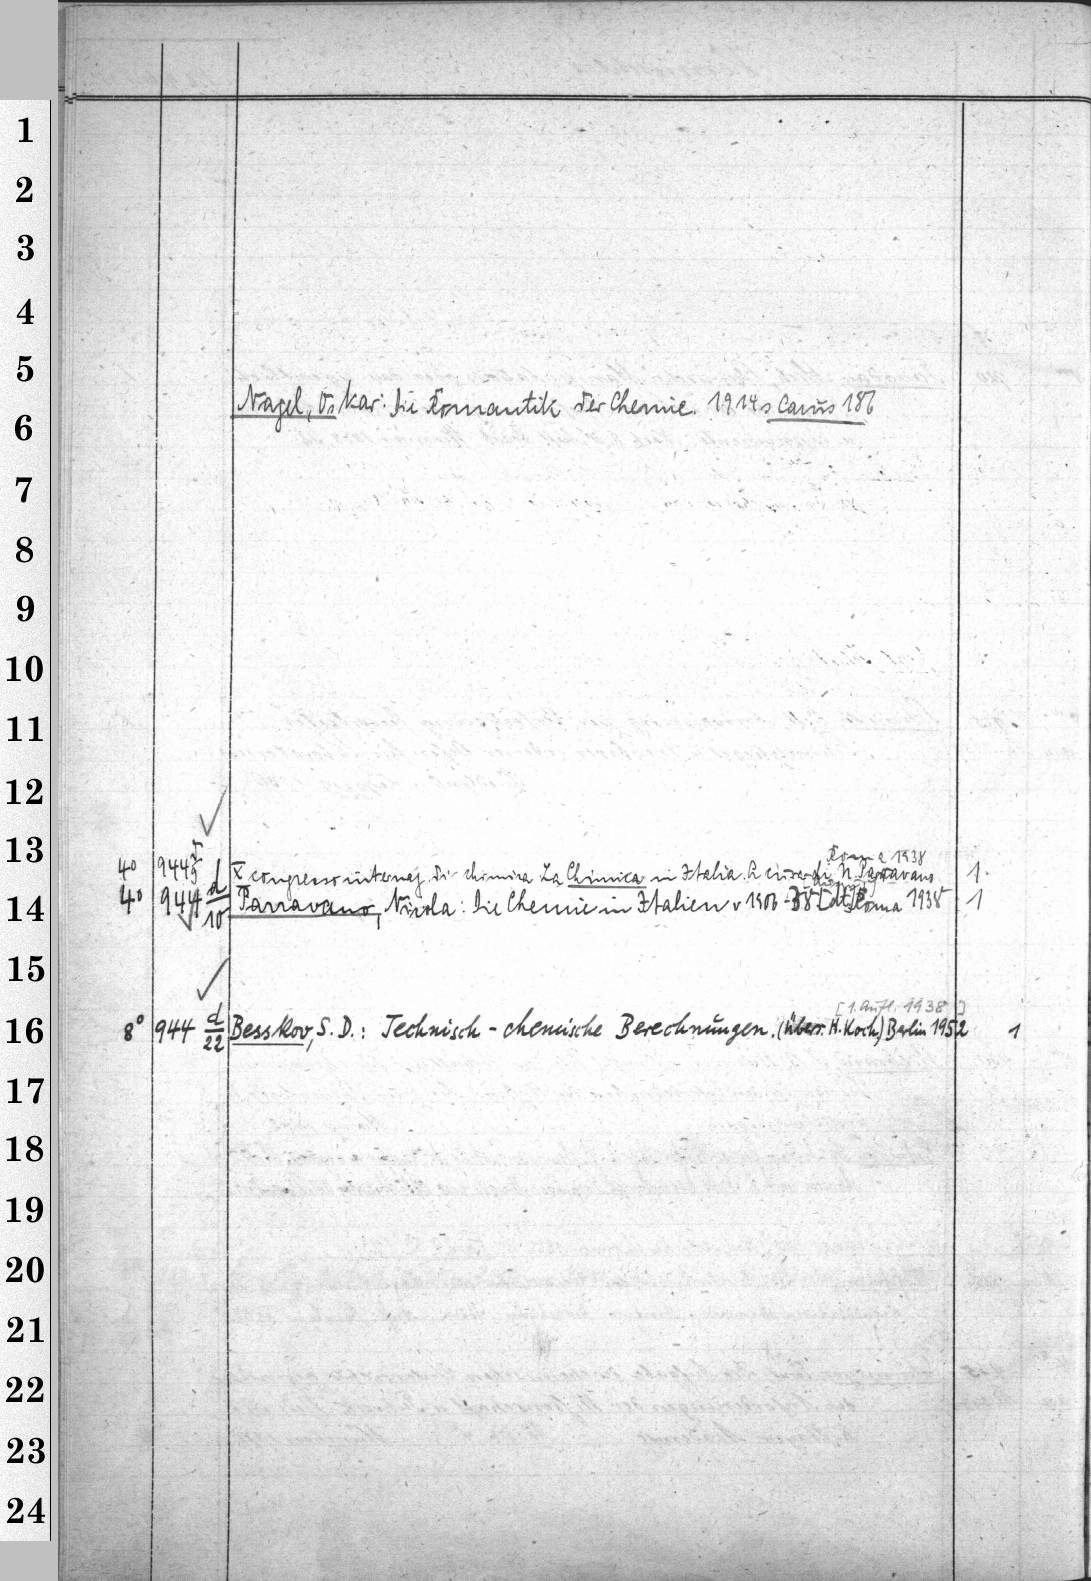 1
2
3
4
5
Nagel, Oskar: Die Romantik der Chemie. 1914 s Carus 186
6
7
8
9
10
11
12
Roma 1938
13
4° 944 X congresso internaz. di chimica La Chimica in Italia. A cura di N. Parravano 1.
14
4° 944 d/10 Parravano, Nicola: Die Chemie in Italien v 1906-38 Roma 1938 1
15
[1. Aufl. 1938]
16
8° 944 d/22 Besskov, S. D.: Technisch-chemische Berechnungen. (Übers. H. Koch) Berlin 1952 1
17
18
19
20
21
22
23
24